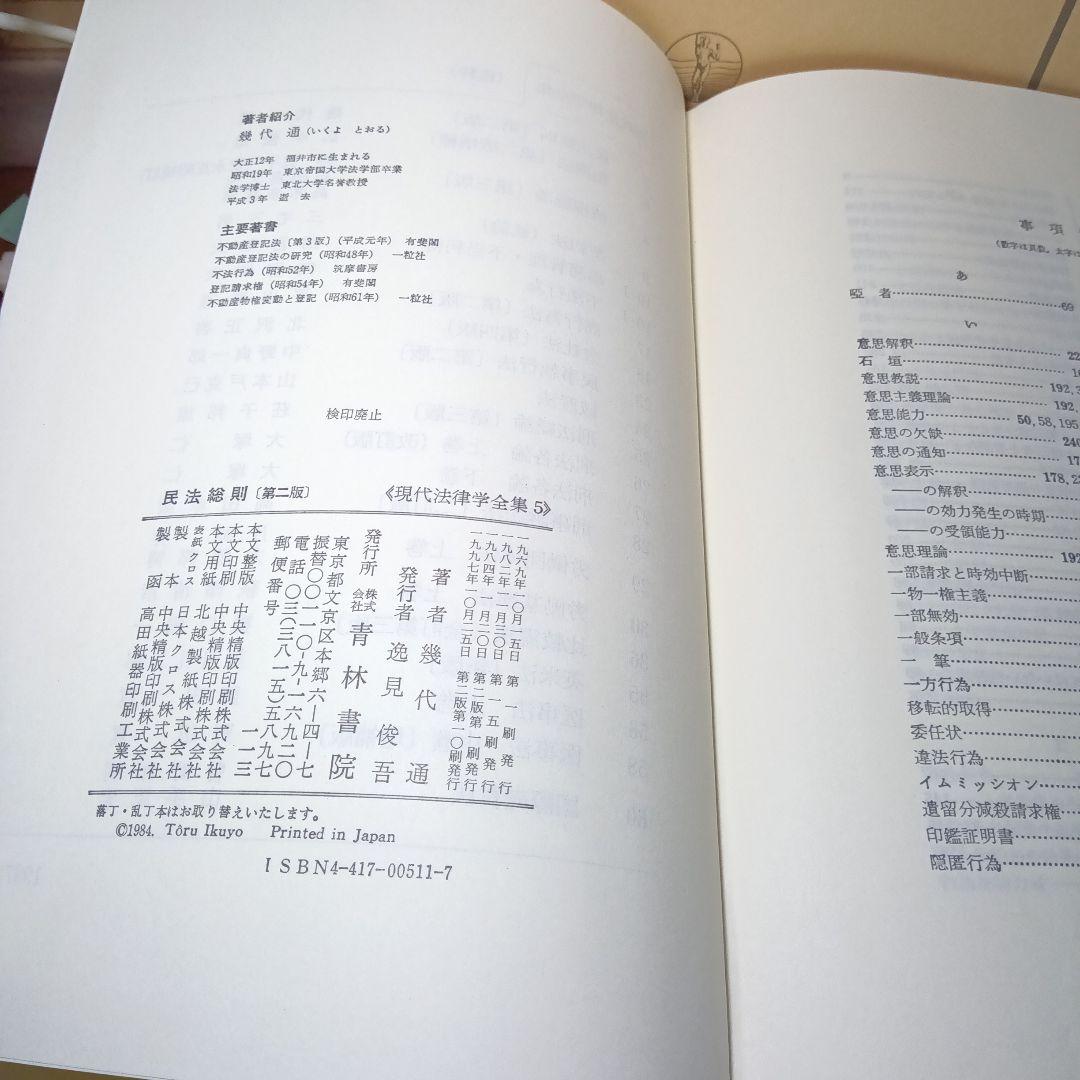 著者紹介
幾代 通(いくよ とおる)
大正12年 福井市に生まれる
昭和19年 東京帝国大学法学部卒業
法学博士 東北大学名誉教授
平成3年 逝去
主要著書
不動産登記法〔第3版〕(平成元年) 有斐閣
不動産登記法の研究(昭和48年) 一粒社
不法行為(昭和52年) 筑摩書房
登記請求権(昭和54年) 有斐閣
不動産物権変動と登記(昭和61年) 一粒社
検印廃止
民法総則〔第二版〕 《現代法律学全集 5》
一九六九年一〇月一五日 第一刷発行
一九八二年一一月三〇日 第一五刷発行
一九八四年一一月二〇日 第二版第一刷発行
一九九七年一〇月二五日 第二版第一〇刷発行
著者 幾代 通
発行者 逸見俊吾
発行所 株式会社 青林書院
東京都文京区本郷六―四―七
振替〇〇一一〇-九-一六九二〇
電話〇三(三八一五)五八九七
郵便番号 一一三
本文整版 中央精版印刷株式会社
本文印刷 中央精版印刷株式会社
本文用紙 北越製紙株式会社
表紙クロス 日本クロス株式会社
製本 中央精版印刷株式会社
製函 高田紙器印刷工業所
落丁・乱丁本はお取り替えいたします。
©1984. Tôru Ikuyo Printed in Japan
ISBN4-417-00511-7
事項
(数字は頁数。太字は
あ
啞者……69
い
意思解釈……22
石垣……
意思教説……192,
意思主義理論……192,
意思能力……50, 58, 195
意思の欠缺……240
意思の通知……
意思表示……178,
――の解釈……
――の効力発生の時期……
――の受領能力……
意思理論……192
一部請求と時効中断……
一物一権主義……
一部無効……
一般条項……
一筆……
一方行為……
移転的取得……
委任状……
違法行為……
イムミッシオン……
遺留分減殺請求権……
印鑑証明書……
隠匿行為……